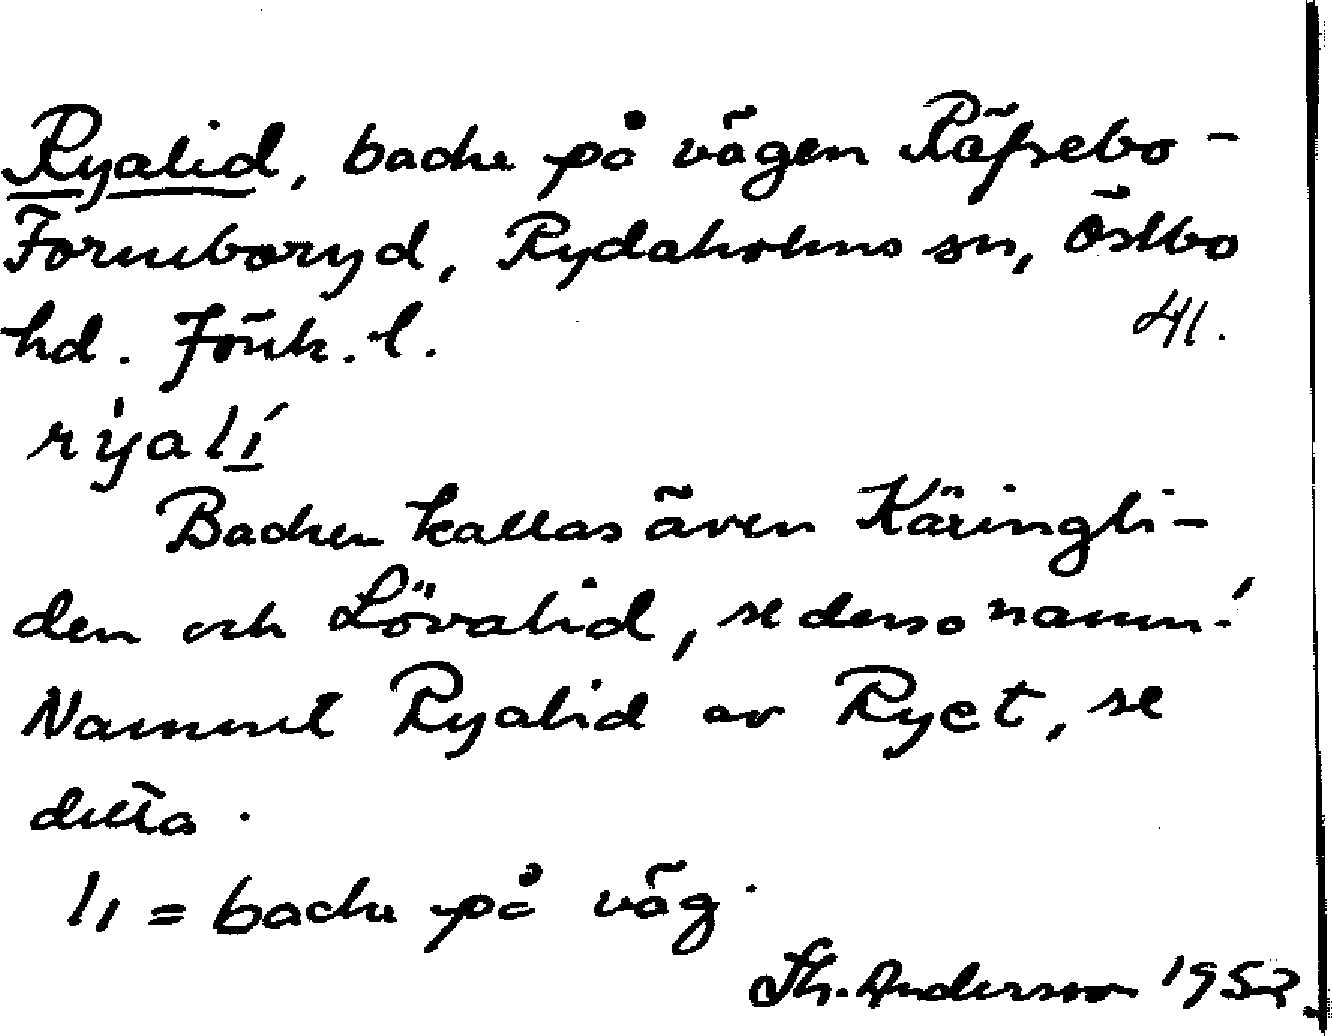 Ryalid, backe på vägen Räfsebo-
Formboryd, Rydaholms sn, Östbo
hd. Jönk. l. 41.
rýalí
Backen kallas även Käringli-
den och Lövalid, se desso namn!
Namnet Ryalid av Ryet, se
detta.
li = backe på väg.
Th. Andersson 1952.